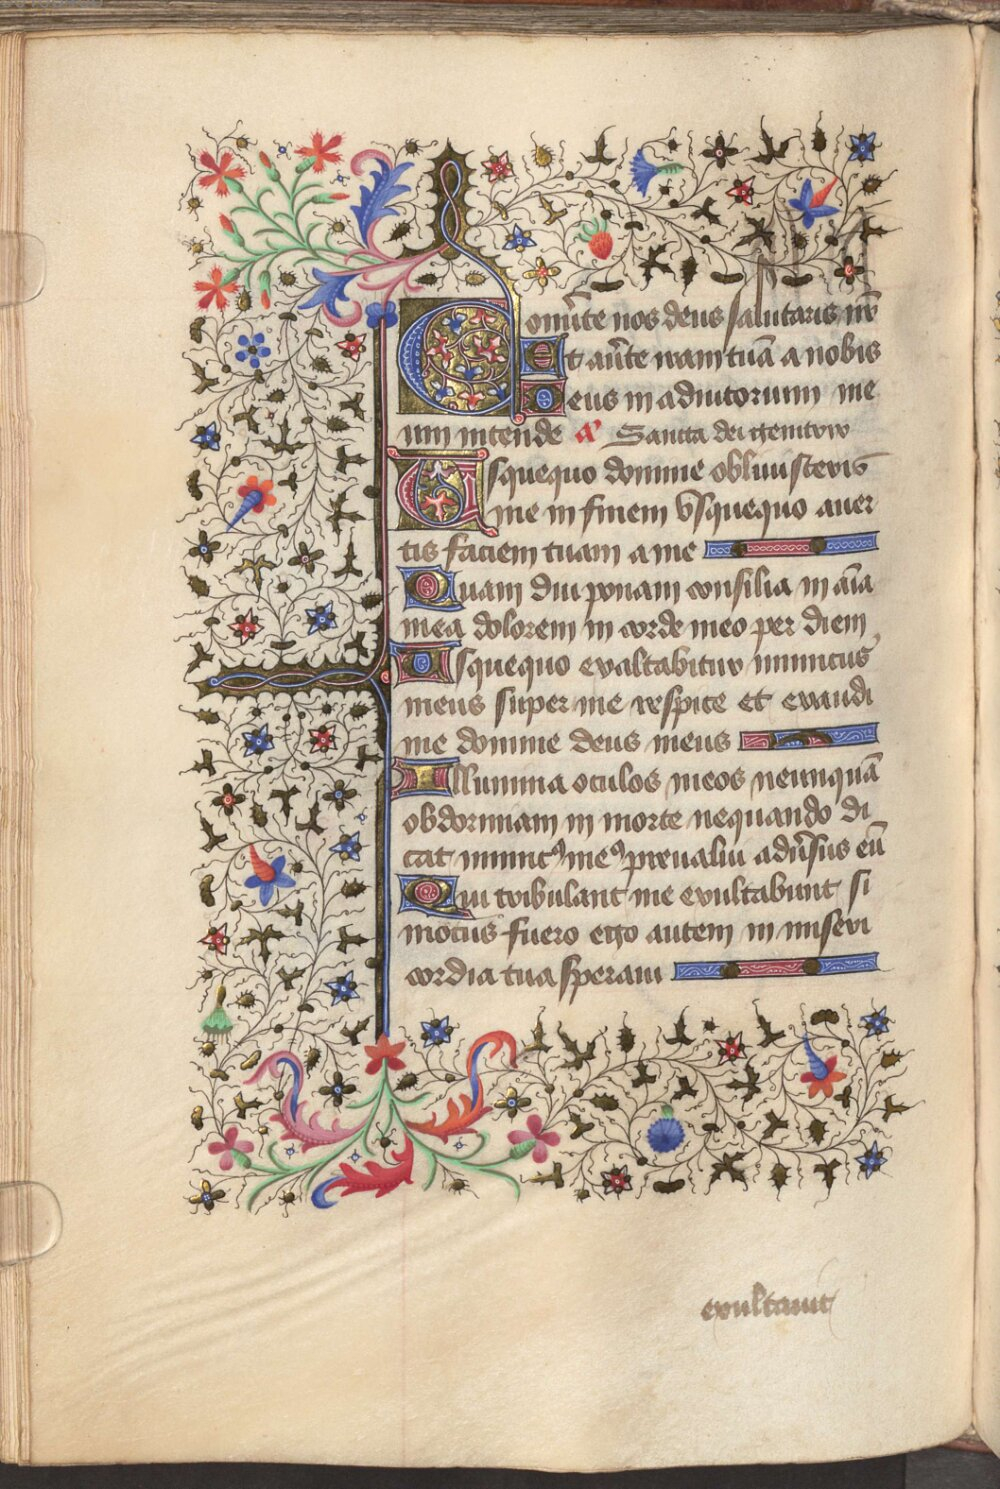 Conu̅te nos deus salutaris nr̅
Et au̅te iram tua̅ a nobis
Deus in adiutorium me
um intende a̅ Sancta dei genitrix
Usquequo domine obliuisceris
me in finem Vsquequo auer
tis faciem tuam a me
Quam diu ponam consilia in a̅i̅a
mea dolorem in corde meo per diem
Usquequo exaltabitur inimicus
meus super me respice et exaudi
me domine deus meus
Illumina oculos meos neunqua̅
obdormiam in morte nequando di
cat inimicꝰ meꝰ preualui adu̅sus eu̅
Qui tribulant me exultabunt si
motus fuero ego autem in miseri
cordia tua speraui
exultauit